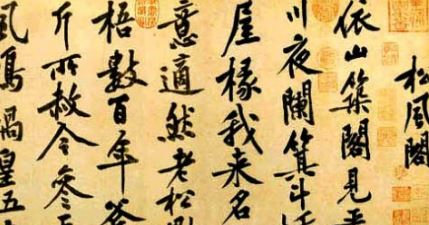 松風閣
依山築閣見平
川夜闌箕斗
屋椽我來名
意適然老松魁
梧數百年斧
斤所赦令參
風鳴媧皇五